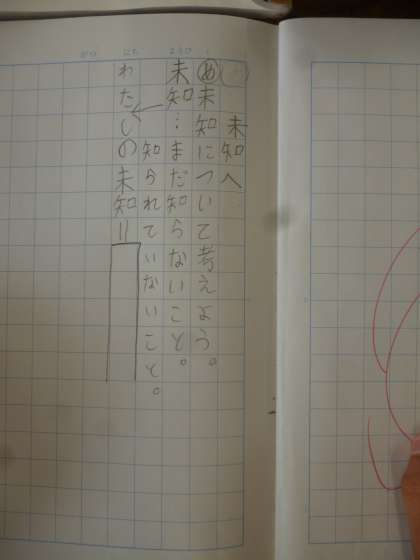 未知へ
め未知について考えよう。
未知…まだ知らないこと。
知られていないこと。
わたしの未知=
がつ にち ようび